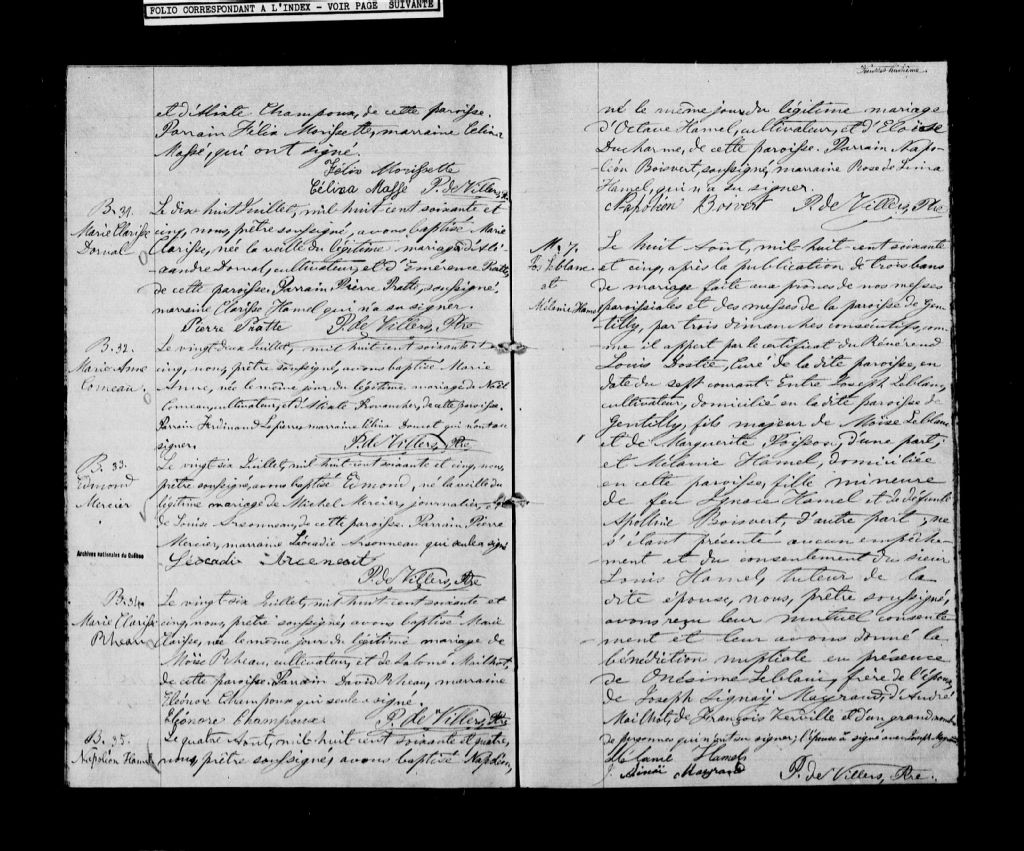 FOLIO CORRESPONDANT A L'INDEX - VOIR PAGE SUIVANTE
et d'Minte Champoux, de cette paroisse.
Parrain Félix Morissette, marraine Celina
Massé, qui ont signé.
Félix Morissette
Célina Massé P. de Villers, Ptre
B. 31.
Marie Clarisse
Dorval
Le dix huit Juillet, mil huit cent soixante et
cinq, nous, prêtre soussigné, avons baptisé Marie
Clarisse, née la veille du légitime mariage d'Ale-
xandre Dorval, cultivateur, et d'Emérence Pratte,
de cette paroisse. Parrain Pierre Pratte, soussigné,
marraine Clarisse Hamel qui n'a su signer.
Pierre Pratte P. de Villers, Ptre
B. 32.
Marie Anne
Comeau.
Le vingt deux Juillet, mil huit cent soixante et
cinq, nous, prêtre soussigné, avons baptisé Marie
Anne, née le même jour du légitime mariage de Noël
Comeau, cultivateur, et de cette paroisse.
Parrain Ferdinand marraine Célina Doucet qui n'ont su
signer.
P. de Villers, Ptre
B. 33.
Edmond
Mercier
Le vingt six Juillet, mil huit cent soixante et cinq, nous,
prêtre soussigné, avons baptisé Edmond, né la veille du
légitime mariage de Michel Mercier, journalier, et
de Louise Arsonneau, de cette paroisse. Parrain Pierre
Mercier, marraine Léocadie Arsonneau qui seule a signé
Archives nationales du Québec
Léocadie Arceneait
P. de Villers, Ptre
B. 34.
Marie Clarisse
Rheau
Le vingt six Juillet, mil huit cent soixante et
cinq, nous, prêtre soussigné, avons baptisé Marie
Clarisse, née le même jour du légitime mariage de
Moïse Rheau, cultivateur, et de Salomé Mailhot,
de cette paroisse. Parrain David Rheau, marraine
Eléonore Champoux qui seule a signé.
Eléonore Champoux P. de Villers, Ptre
B. 35.
Napoléon Hamel
Le quatre Aout, mil huit cent soixante et quatre,
nous, prêtre soussigné, avons baptisé Napoléon,
Feuillet huitième.
né le même jour du légitime mariage
d'Octave Hamel, cultivateur, et d'Eloïse
Ducharme, de cette paroisse. Parrain Napo-
léon Boisvert, soussigné, marraine Rose de Lima
Hamel, qui n'a su signer.
Napoléon Boivert P. de Villers, Ptre
M. 7.
Jos Leblanc
et
Mélanie Hamel
Le huit Aout, mil huit cent soixante
et cinq, après la publication de trois bans
de mariage faite aux prônes de nos messes
paroissiales et des messes de la paroisse de Gen-
tilly, par trois dimanches consécutifs, com-
me il appert par le certificat du Révérend
Louis Dostie, Curé de la dite paroisse, en
date du sept courant. Entre Joseph Leblanc,
cultivateur, domicilié en la dite paroisse de
Gentilly, fils majeur de Moïse Leblanc
et de Marguerite Poisson, d'une part;
et Mélanie Hamel, domiciliée
en cette paroisse, fille mineure
de feu Ignace Hamel et de défunte
Apolline Boisvert, d'autre part; ne
s'étant présenté aucun empêche-
ment et du consentement du sieur
Louis Hamel, tuteur de la
dite épouse, nous, prêtre soussigné,
avons reçu leur mutuel consente-
ment et leur avons donné la
bénédiction nuptiale en présence
de Onésime Leblanc, frère de l'époux,
de Joseph Signaÿ Mayrand, d'André
Mailhot, de François Verville et d'un grand nombre
de personnes qui n'ont su signer; l'épouse a signé avec Joseph
Mélanie Hamel
J. Sinaï Mayrand
P. de Villers, Ptre.